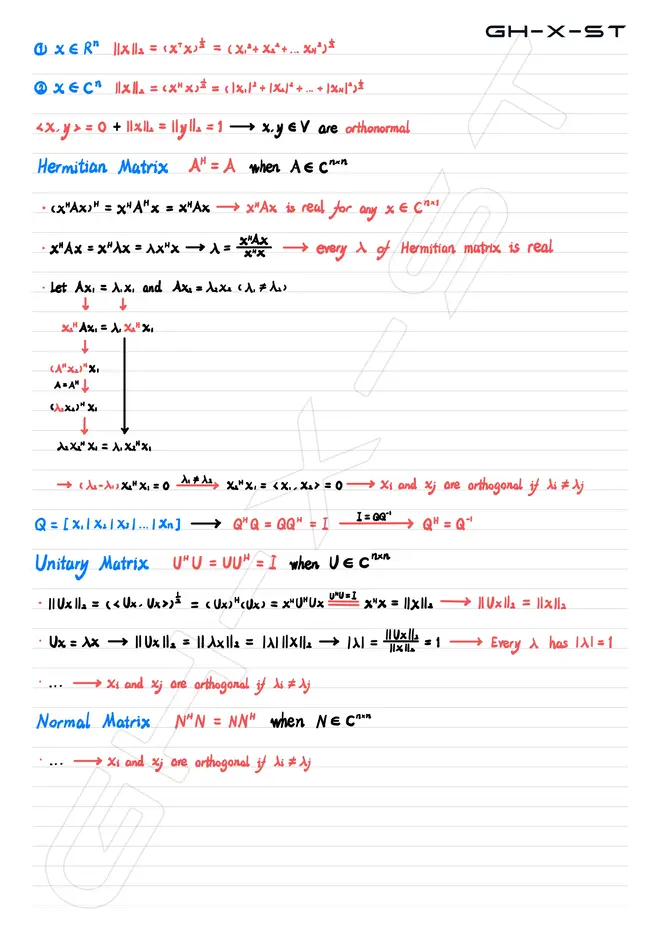 GH-X-ST
① x ∈ Rⁿ ||x||₂ = (xᵀx)^½ = (x₁² + x₂² + ... xₙ²)^½
② x ∈ Cⁿ ||x||₂ = (xᴴx)^½ = (|x₁|² + |x₂|² + ... + |xₙ|²)^½
<x, y> = 0 + ||x||₂ = ||y||₂ = 1 → x, y ∈ V are orthonormal
Hermitian Matrix Aᴴ = A when A ∈ Cⁿˣⁿ
· (xᴴAx)ᴴ = xᴴAᴴx = xᴴAx → xᴴAx is real for any x ∈ Cⁿˣ¹
· xᴴAx = xᴴλx = λxᴴx → λ = xᴴAx / xᴴx → every λ of Hermitian matrix is real
· Let Ax₁ = λ₁x₁ and Ax₂ = λ₂x₂ (λ₁ ≠ λ₂)
↓ ↓
x₂ᴴAx₁ = λ₁x₂ᴴx₁
↓
(Aᴴx₂)ᴴx₁
A = Aᴴ ↓
(λ₂x₂)ᴴx₁
↓ ↓
λ₂x₂ᴴx₁ = λ₁x₂ᴴx₁
→ (λ₂-λ₁)x₂ᴴx₁ = 0 λ₁ ≠ λ₂ → x₂ᴴx₁ = <x₁, x₂> = 0 → xi and xj are orthogonal if λi ≠ λj
Q = [x₁ | x₂ | x₃ | ... | xn] → QᴴQ = QQᴴ = I I = QQ⁻¹ → Qᴴ = Q⁻¹
Unitary Matrix UᴴU = UUᴴ = I when U ∈ Cⁿˣⁿ
· ||Ux||₂ = (<Ux, Ux>)^½ = (Ux)ᴴ(Ux) = xᴴUᴴUx UᴴU=I = xᴴx = ||x||₂ → ||Ux||₂ = ||x||₂
· Ux = λx → ||Ux||₂ = ||λx||₂ = |λ| ||x||₂ → |λ| = ||Ux||₂ / ||x||₂ = 1 → Every λ has |λ| = 1
· ... → xi and xj are orthogonal if λi ≠ λj
Normal Matrix NᴴN = NNᴴ when N ∈ Cⁿˣⁿ
· ... → xi and xj are orthogonal if λi ≠ λj
GH-X-ST